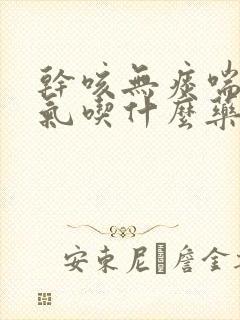 幹咳無痰喘
氣喫什麼藥
安東尼 詹金